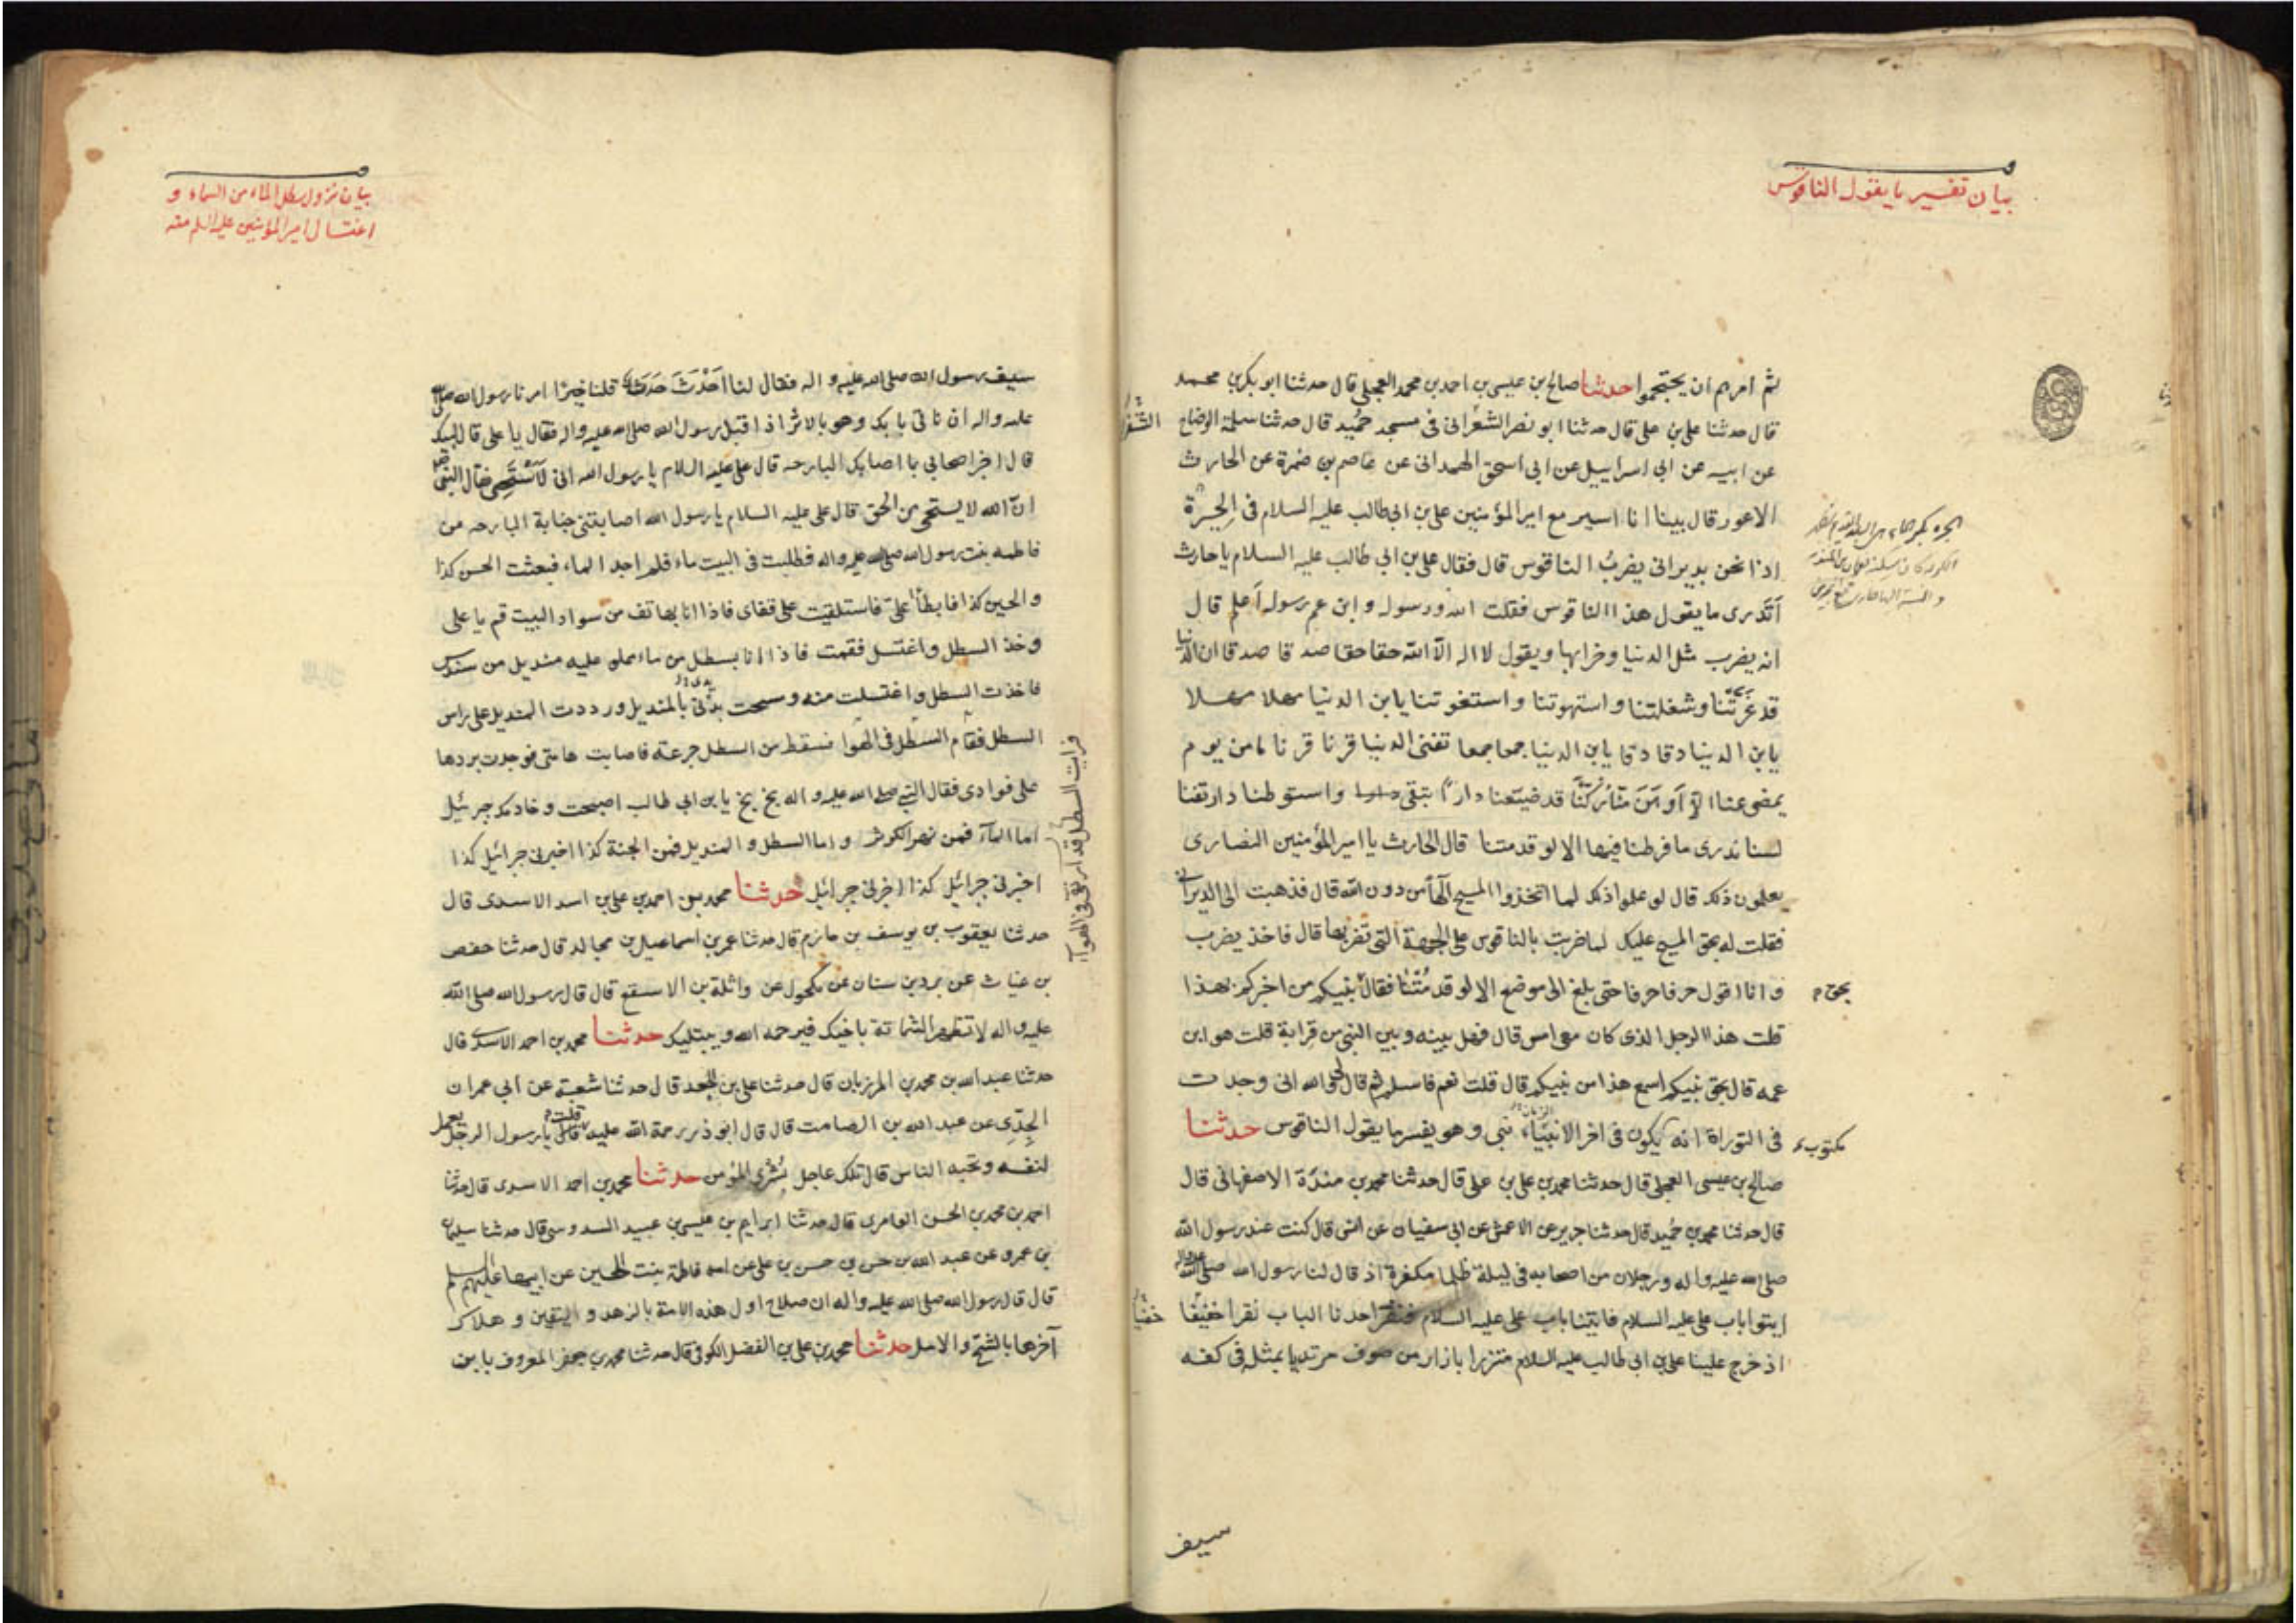 بيان تفسير ما يقول الناقوس
ثم امرهم ان يحتجموا حدثنا صالح بن عيسى بن احمد بن محمد العجلى قال حدثنا ابو بكر بن محمد
قال حدثنا على بن على قال حدثنا ابو نصر الشعرانى فى مسجد حميد قال حدثنا سلمة الوضاح
عن ابيه عن ابى اسراييل عن ابى اسحق الهمدانى عن عاصم بن ضمرة عن الحارث
الاعور قال بينا انا اسير مع امير المؤمنين على بن ابى طالب عليه السلام فى الحيرة
اذا نحن بديرانى يضرب الناقوس قال فقال على بن ابى طالب عليه السلام يا حارث
أتدرى ما يقول هذا الناقوس فقلت الله ورسوله وابن عم رسوله أعلم قال
انه يضرب مثل الدنيا وخرابها ويقول لا اله الا الله حقا حقا صدقا صدقا ان الدنيا
قد غرتنا وشغلتنا واستهوتنا واستغوتنا يا بن الدنيا مهلا مهلا
يا بن الدنيا دقا دقا يا بن الدنيا جمعا جمعا تفنى الدنيا قرنا قرنا ما من يوم
يمضى عنا الا أوهن منا ركنا قد ضيعنا دارا تبقى واستوطنا دار تفنا
لسنا ندرى ما فرطنا فيها الا لو قد متنا قال الحارث يا امير المؤمنين النصارى
يعلمون ذلك قال لو علموا ذلك لما اتخذوا المسيح الها من دون الله قال فذهبت الى الديرانى
فقلت له بحق المسيح عليك لما ضربت بالناقوس على الجهة التى تضربها قال فاخذ يضرب
وانا اقول حرفا حرفا حتى بلغ الى موضع الا لو قد متنا فقال بنبيكم من اخبركم بهذا
بحق
قلت هذا الرجل الذى كان معى امس قال فهل بينه وبين النبى من قرابة قلت هو ابن
عمه قال بحق نبيكم اسمع هذا من نبيكم قال قلت نعم فاسلم ثم قال لى والله انى وجدت
فى التوراة انه يكون فى اخر الانبياء نبى وهو يفسر ما يقول الناقوس حدثنا
مكتوب
صالح بن عيسى العجلى قال حدثنا محمد بن على بن على قال حدثنا محمد بن مندة الاصفهانى قال
قال حدثنا محمد بن حميد قال حدثنا جرير عن الاعمش عن ابى سفيان عن انس قال كنت عند رسول الله
صلى الله عليه واله ورجلان من اصحابه فى ليلة ظلما مكفهرة اذ قال لنا رسول الله صلى الله عليه واله
ايتوا باب على عليه السلام فاتينا باب على عليه السلام فنقر احدنا الباب نقرا خفيفا
خفيا
اذ خرج علينا على بن ابى طالب عليه السلام متزرا بازار من صوف مرتديا بمثله فى كفه
سيف
بيان نزول سطل الماء من السماء و
اغتسال امير المؤمنين عليه السلم منه
سيف رسول الله صلى الله عليه واله فقال لنا أحدث حدث قلنا خيرا امرنا رسول الله صلى الله
عليه واله ان ناتى بابك وهو بالاثر اذ اقبل رسول الله صلى الله عليه واله فقال يا على قال لبيك
قال اخبر اصحابى بما اصابك البارحه قال على عليه السلام يا رسول الله انى لأستحيى فقال النبى
ان الله لا يستحيى من الحق قال على عليه السلام يا رسول الله اصابتنى جنابة البارحه من
فاطمه بنت رسول الله صلى الله عليه واله فطلبت فى البيت ماء فلم اجد الماء فبعثت الحسن كذا
والحسين كذا فابطأا على فاستلقيت على قفاى فاذا انا بهاتف من سواد البيت قم يا على
وخذ السطل واغتسل فقمت فاذا انا بسطل من ماء مملو عليه منديل من سندس
فاخذت السطل واغتسلت منه ومسحت بدنى بالمنديل ورددت المنديل على راس
السطل فقام السطل فى الهوا فسقط من السطل جرعة فاصابت هامتى فوجدت بردها
فرايت السطل قد ارتقى فى الهواء
على فوادى فقال النبى صلى الله عليه واله بخ بخ يا بن ابى طالب اصبحت وخادمك جبرئيل
اما الماء فمن نهر الكوثر واما السطل والمنديل فمن الجنة كذا اخبرنى جبرائيل كذا
اخبرنى جبرائيل كذا اخبرنى جبرائيل حدثنا محمد بن احمد بن على بن اسد الاسدى قال
حدثنا يعقوب بن يوسف بن حازم قال حدثنا عمر بن اسماعيل بن مجالد قال حدثنا حفص
بن غياث عن برد بن سنان عن مكحول عن واثلة بن الاسقع قال قال رسول الله صلى الله
عليه واله لا تظهر الشماتة باخيك فيرحمه الله ويبتليك حدثنا محمد بن احمد الاسدى قال
حدثنا عبد الله بن محمد بن المرزبان قال حدثنا على بن الجعد قال حدثنا شعبة عن ابى عمران
الجدى عن عبد الله بن الصامت قال قال ابو ذر رحمة الله عليه قلت يا رسول الرجل يعمل
لنفسه وتحبه الناس قال تلك عاجل بشرى المؤمن حدثنا محمد بن احمد الاسدى قال حدثنا
احمد بن محمد بن الحسن العامرى قال حدثنا ابراهيم بن عيسى بن عبيد السدوسى قال حدثنا سليمان
بن عمرو عن عبد الله بن حسن بن حسن بن على عن امه فاطمة بنت الحسين عن ابيها عليهم السلم
قال قال رسول الله صلى الله عليه واله ان صلاح اول هذه الامة بالزهد و اليقين وهلاك
آخرها بالشح والامل حدثنا محمد بن على بن الفضل الكوفى قال حدثنا محمد بن جعفر المعروف بابن